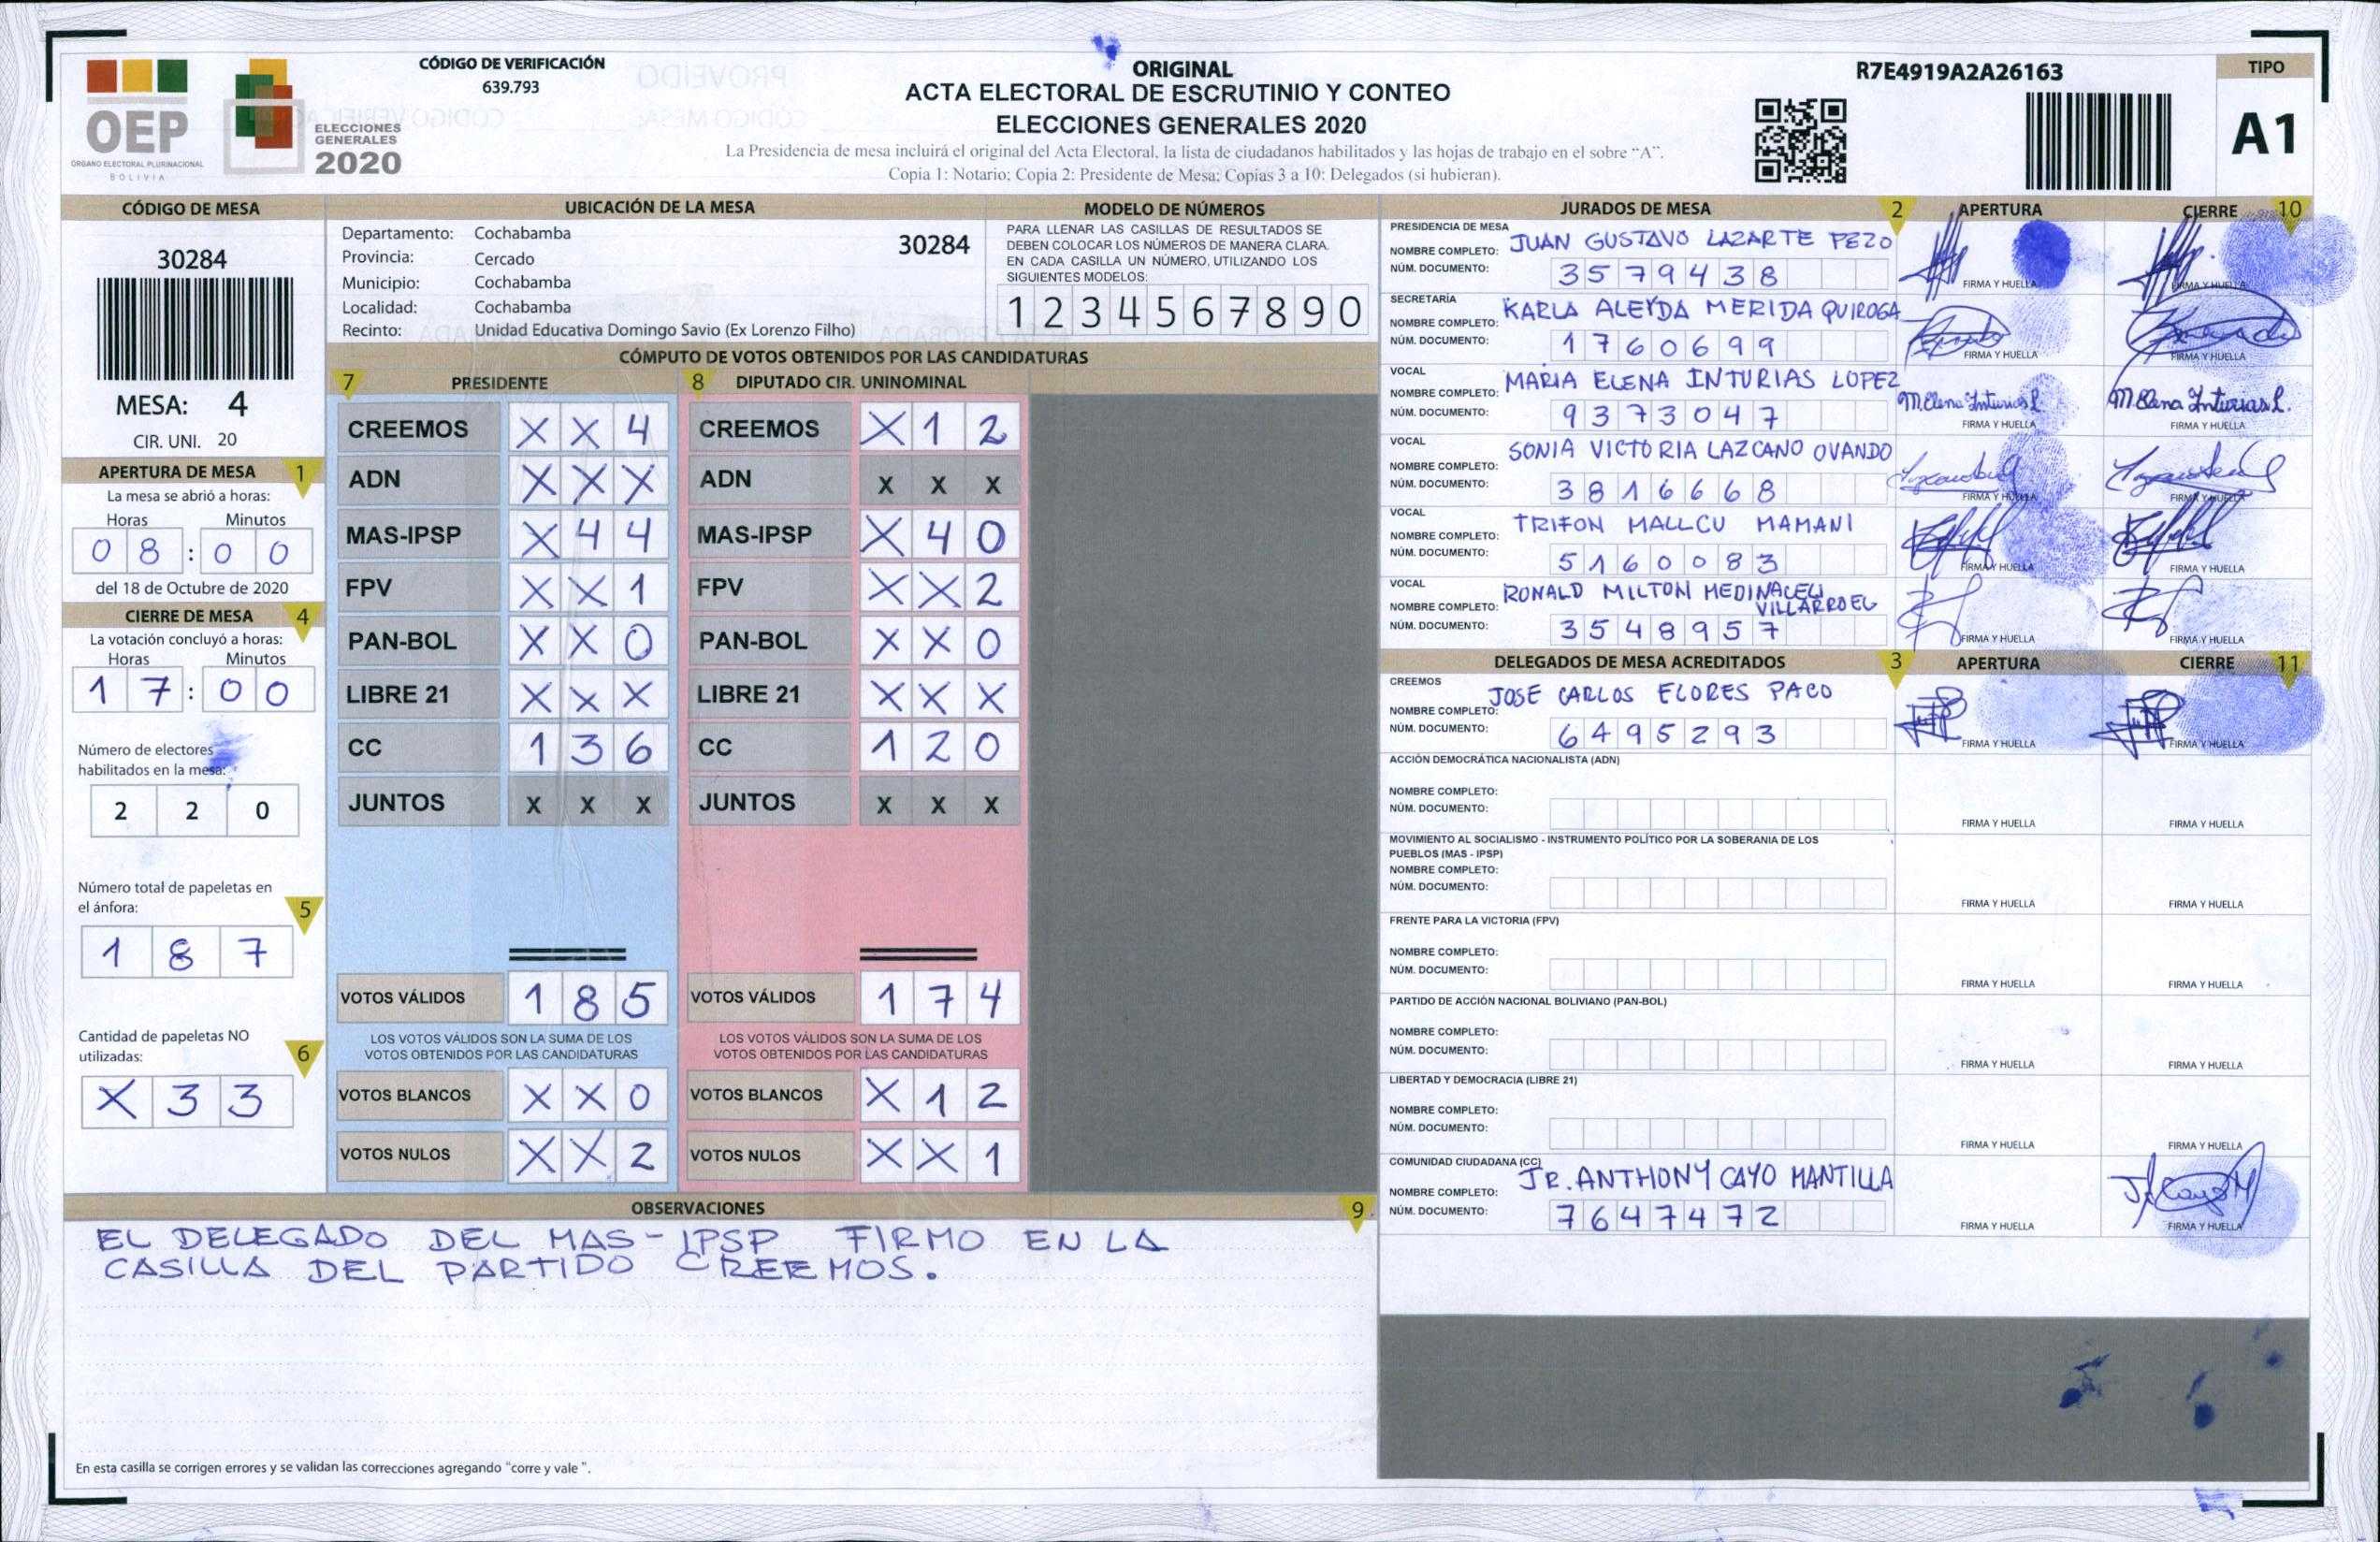 OEP
ÓRGANO ELECTORAL PLURINACIONAL
BOLIVIA
ELECCIONES
GENERALES
2020
CÓDIGO DE VERIFICACIÓN
639.793
ORIGINAL
ACTA ELECTORAL DE ESCRUTINIO Y CONTEO
ELECCIONES GENERALES 2020
La Presidencia de mesa incluirá el original del Acta Electoral, la lista de ciudadanos habilitados y las hojas de trabajo en el sobre “A”.
Copia 1: Notario; Copia 2: Presidente de Mesa; Copias 3 a 10: Delegados (si hubieran).
R7E4919A2A26163
TIPO
A1
CÓDIGO DE MESA
30284
MESA: 4
CIR. UNI. 20
APERTURA DE MESA 1
La mesa se abrió a horas:
Horas Minutos
0 8 : 0 0
del 18 de Octubre de 2020
CIERRE DE MESA 4
La votación concluyó a horas:
Horas Minutos
1 7 : 0 0
Número de electores
habilitados en la mesa:
2 2 0
Número total de papeletas en
el ánfora: 5
1 8 7
Cantidad de papeletas NO
utilizadas: 6
X 3 3
UBICACIÓN DE LA MESA
Departamento: Cochabamba
30284
Provincia: Cercado
Municipio: Cochabamba
Localidad: Cochabamba
Recinto: Unidad Educativa Domingo Savio (Ex Lorenzo Filho)
MODELO DE NÚMEROS
PARA LLENAR LAS CASILLAS DE RESULTADOS SE
DEBEN COLOCAR LOS NÚMEROS DE MANERA CLARA.
EN CADA CASILLA UN NÚMERO, UTILIZANDO LOS
SIGUIENTES MODELOS:
1 2 3 4 5 6 7 8 9 0
CÓMPUTO DE VOTOS OBTENIDOS POR LAS CANDIDATURAS
7 PRESIDENTE
CREEMOS X X 4
ADN X X X
MAS-IPSP X 4 4
FPV X X 1
PAN-BOL X X 0
LIBRE 21 X X X
CC 1 3 6
JUNTOS X X X
VOTOS VÁLIDOS 1 8 5
LOS VOTOS VÁLIDOS SON LA SUMA DE LOS
VOTOS OBTENIDOS POR LAS CANDIDATURAS
VOTOS BLANCOS X X 0
VOTOS NULOS X X 2
8 DIPUTADO CIR. UNINOMINAL
CREEMOS X 1 2
ADN X X X
MAS-IPSP X 4 0
FPV X X 2
PAN-BOL X X 0
LIBRE 21 X X X
CC 1 2 0
JUNTOS X X X
VOTOS VÁLIDOS 1 7 4
LOS VOTOS VÁLIDOS SON LA SUMA DE LOS
VOTOS OBTENIDOS POR LAS CANDIDATURAS
VOTOS BLANCOS X 1 2
VOTOS NULOS X X 1
OBSERVACIONES 9
EL DELEGADO DEL MAS-IPSP FIRMO EN LA
CASILLA DEL PARTIDO CREEMOS.
En esta casilla se corrigen errores y se validan las correcciones agregando “corre y vale ”.
JURADOS DE MESA 2 APERTURA CIERRE 10
PRESIDENCIA DE MESA
NOMBRE COMPLETO: JUAN GUSTAVO LAZARTE PEZO
NÚM. DOCUMENTO: 3579438
FIRMA Y HUELLA FIRMA Y HUELLA
SECRETARÍA
NOMBRE COMPLETO: KARLA ALEYDA MERIDA QUIROGA
NÚM. DOCUMENTO: 1760699
FIRMA Y HUELLA FIRMA Y HUELLA
VOCAL
NOMBRE COMPLETO: MARIA ELENA INTURIAS LOPEZ
M.Elena Inturias L. M.Elena Inturias L.
NÚM. DOCUMENTO: 9373047
FIRMA Y HUELLA FIRMA Y HUELLA
VOCAL
NOMBRE COMPLETO: SONIA VICTORIA LAZCANO OVANDO
NÚM. DOCUMENTO: 3816668
FIRMA Y HUELLA FIRMA Y HUELLA
VOCAL
NOMBRE COMPLETO: TRIFON MALLCU MAMANI
NÚM. DOCUMENTO: 5160083
FIRMA Y HUELLA FIRMA Y HUELLA
VOCAL
NOMBRE COMPLETO: RONALD MILTON MEDINACELI
VILLARROEL
NÚM. DOCUMENTO: 3548957
FIRMA Y HUELLA FIRMA Y HUELLA
DELEGADOS DE MESA ACREDITADOS 3 APERTURA CIERRE 11
CREEMOS
NOMBRE COMPLETO: JOSE CARLOS FLORES PACO
NÚM. DOCUMENTO: 6495293
FIRMA Y HUELLA FIRMA Y HUELLA
ACCIÓN DEMOCRÁTICA NACIONALISTA (ADN)
NOMBRE COMPLETO:
NÚM. DOCUMENTO:
FIRMA Y HUELLA FIRMA Y HUELLA
MOVIMIENTO AL SOCIALISMO - INSTRUMENTO POLÍTICO POR LA SOBERANIA DE LOS
PUEBLOS (MAS - IPSP)
NOMBRE COMPLETO:
NÚM. DOCUMENTO:
FIRMA Y HUELLA FIRMA Y HUELLA
FRENTE PARA LA VICTORIA (FPV)
NOMBRE COMPLETO:
NÚM. DOCUMENTO:
FIRMA Y HUELLA FIRMA Y HUELLA
PARTIDO DE ACCIÓN NACIONAL BOLIVIANO (PAN-BOL)
NOMBRE COMPLETO:
NÚM. DOCUMENTO:
FIRMA Y HUELLA FIRMA Y HUELLA
LIBERTAD Y DEMOCRACIA (LIBRE 21)
NOMBRE COMPLETO:
NÚM. DOCUMENTO:
FIRMA Y HUELLA FIRMA Y HUELLA
COMUNIDAD CIUDADANA (CC)
NOMBRE COMPLETO: JR. ANTHONY CAYO MANTILLA
NÚM. DOCUMENTO: 7647472
FIRMA Y HUELLA FIRMA Y HUELLA